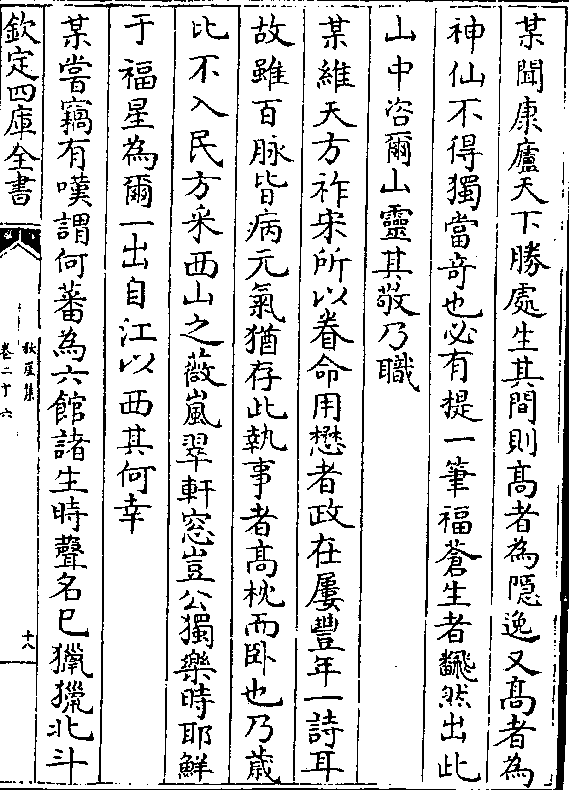 某聞康廬天下勝處生其間則髙者為隱逸又髙者為
神仙不得獨當竒也必有提一筆福蒼生者飜然出此
山中咨爾山靈其敬乃職
某維天方祚宋所以眷命用懋者政在屢豐年一詩耳
故雖百脉皆病元氣猶存此執事者髙枕而卧也乃歳
比不入民方采西山之薇嵐翠軒窓豈公獨樂時耶鮮
于福星為爾一出自江以西其何幸
某嘗竊有嘆謂何蕃為六館諸生時聲名已獵獵北斗
欽定四庫全書
秋崖集
卷二十六
十八